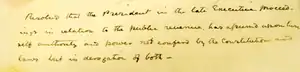 Resolved that the President in the late Executive proceed-
ings in relation to the public revenue, has assumed upon him-
self authority and power not conferred by the Constitution and
laws but in derogation of both –